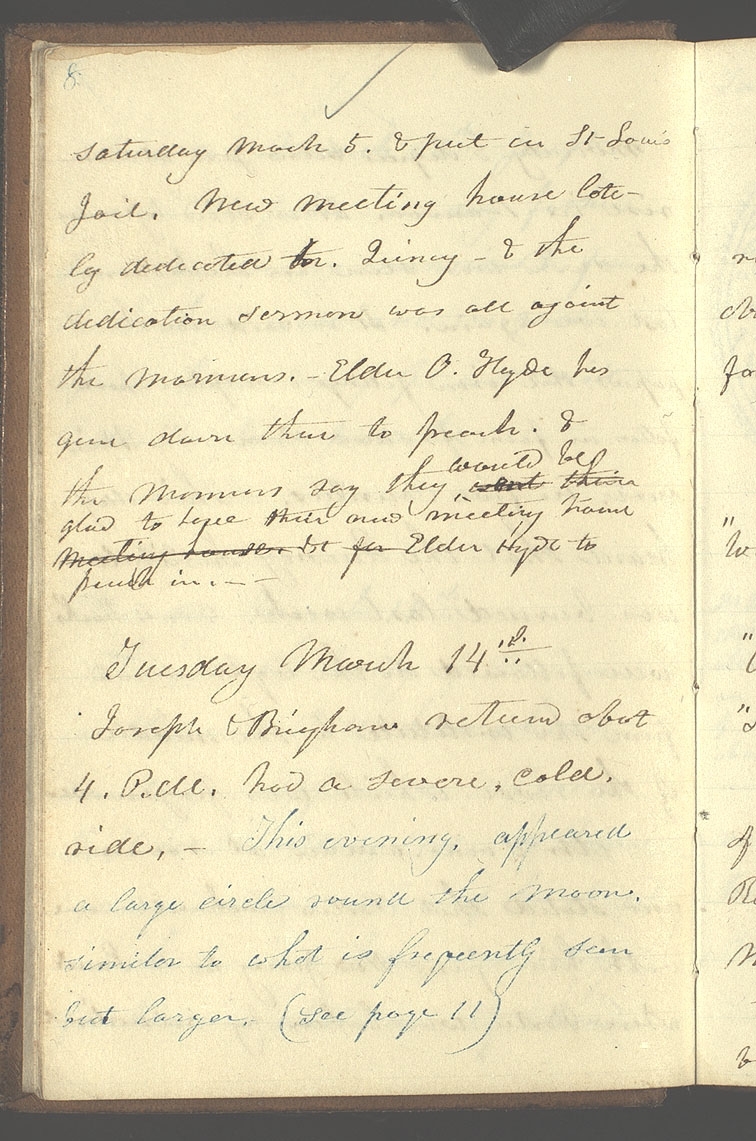 8
saturday march 5. & put in St Louis
Jail. New meeting house late-
ly dedicated in. Quincy - & the
dedication sermon was all against
the mormons. - Elder O. Hyde has
gone down there to preach. &
the mormons say they would be
went their
glad to have their new meeting house
meeting house. for for Elder Hyde to
preach in. - -
Tuesday March 14th
Joseph & Brigham return about
4. P.M. had a severe, cold.
ride, - This evening. appeared
a large circle round the moon.
similar to what is freqently seen
but larger. (see page 11)